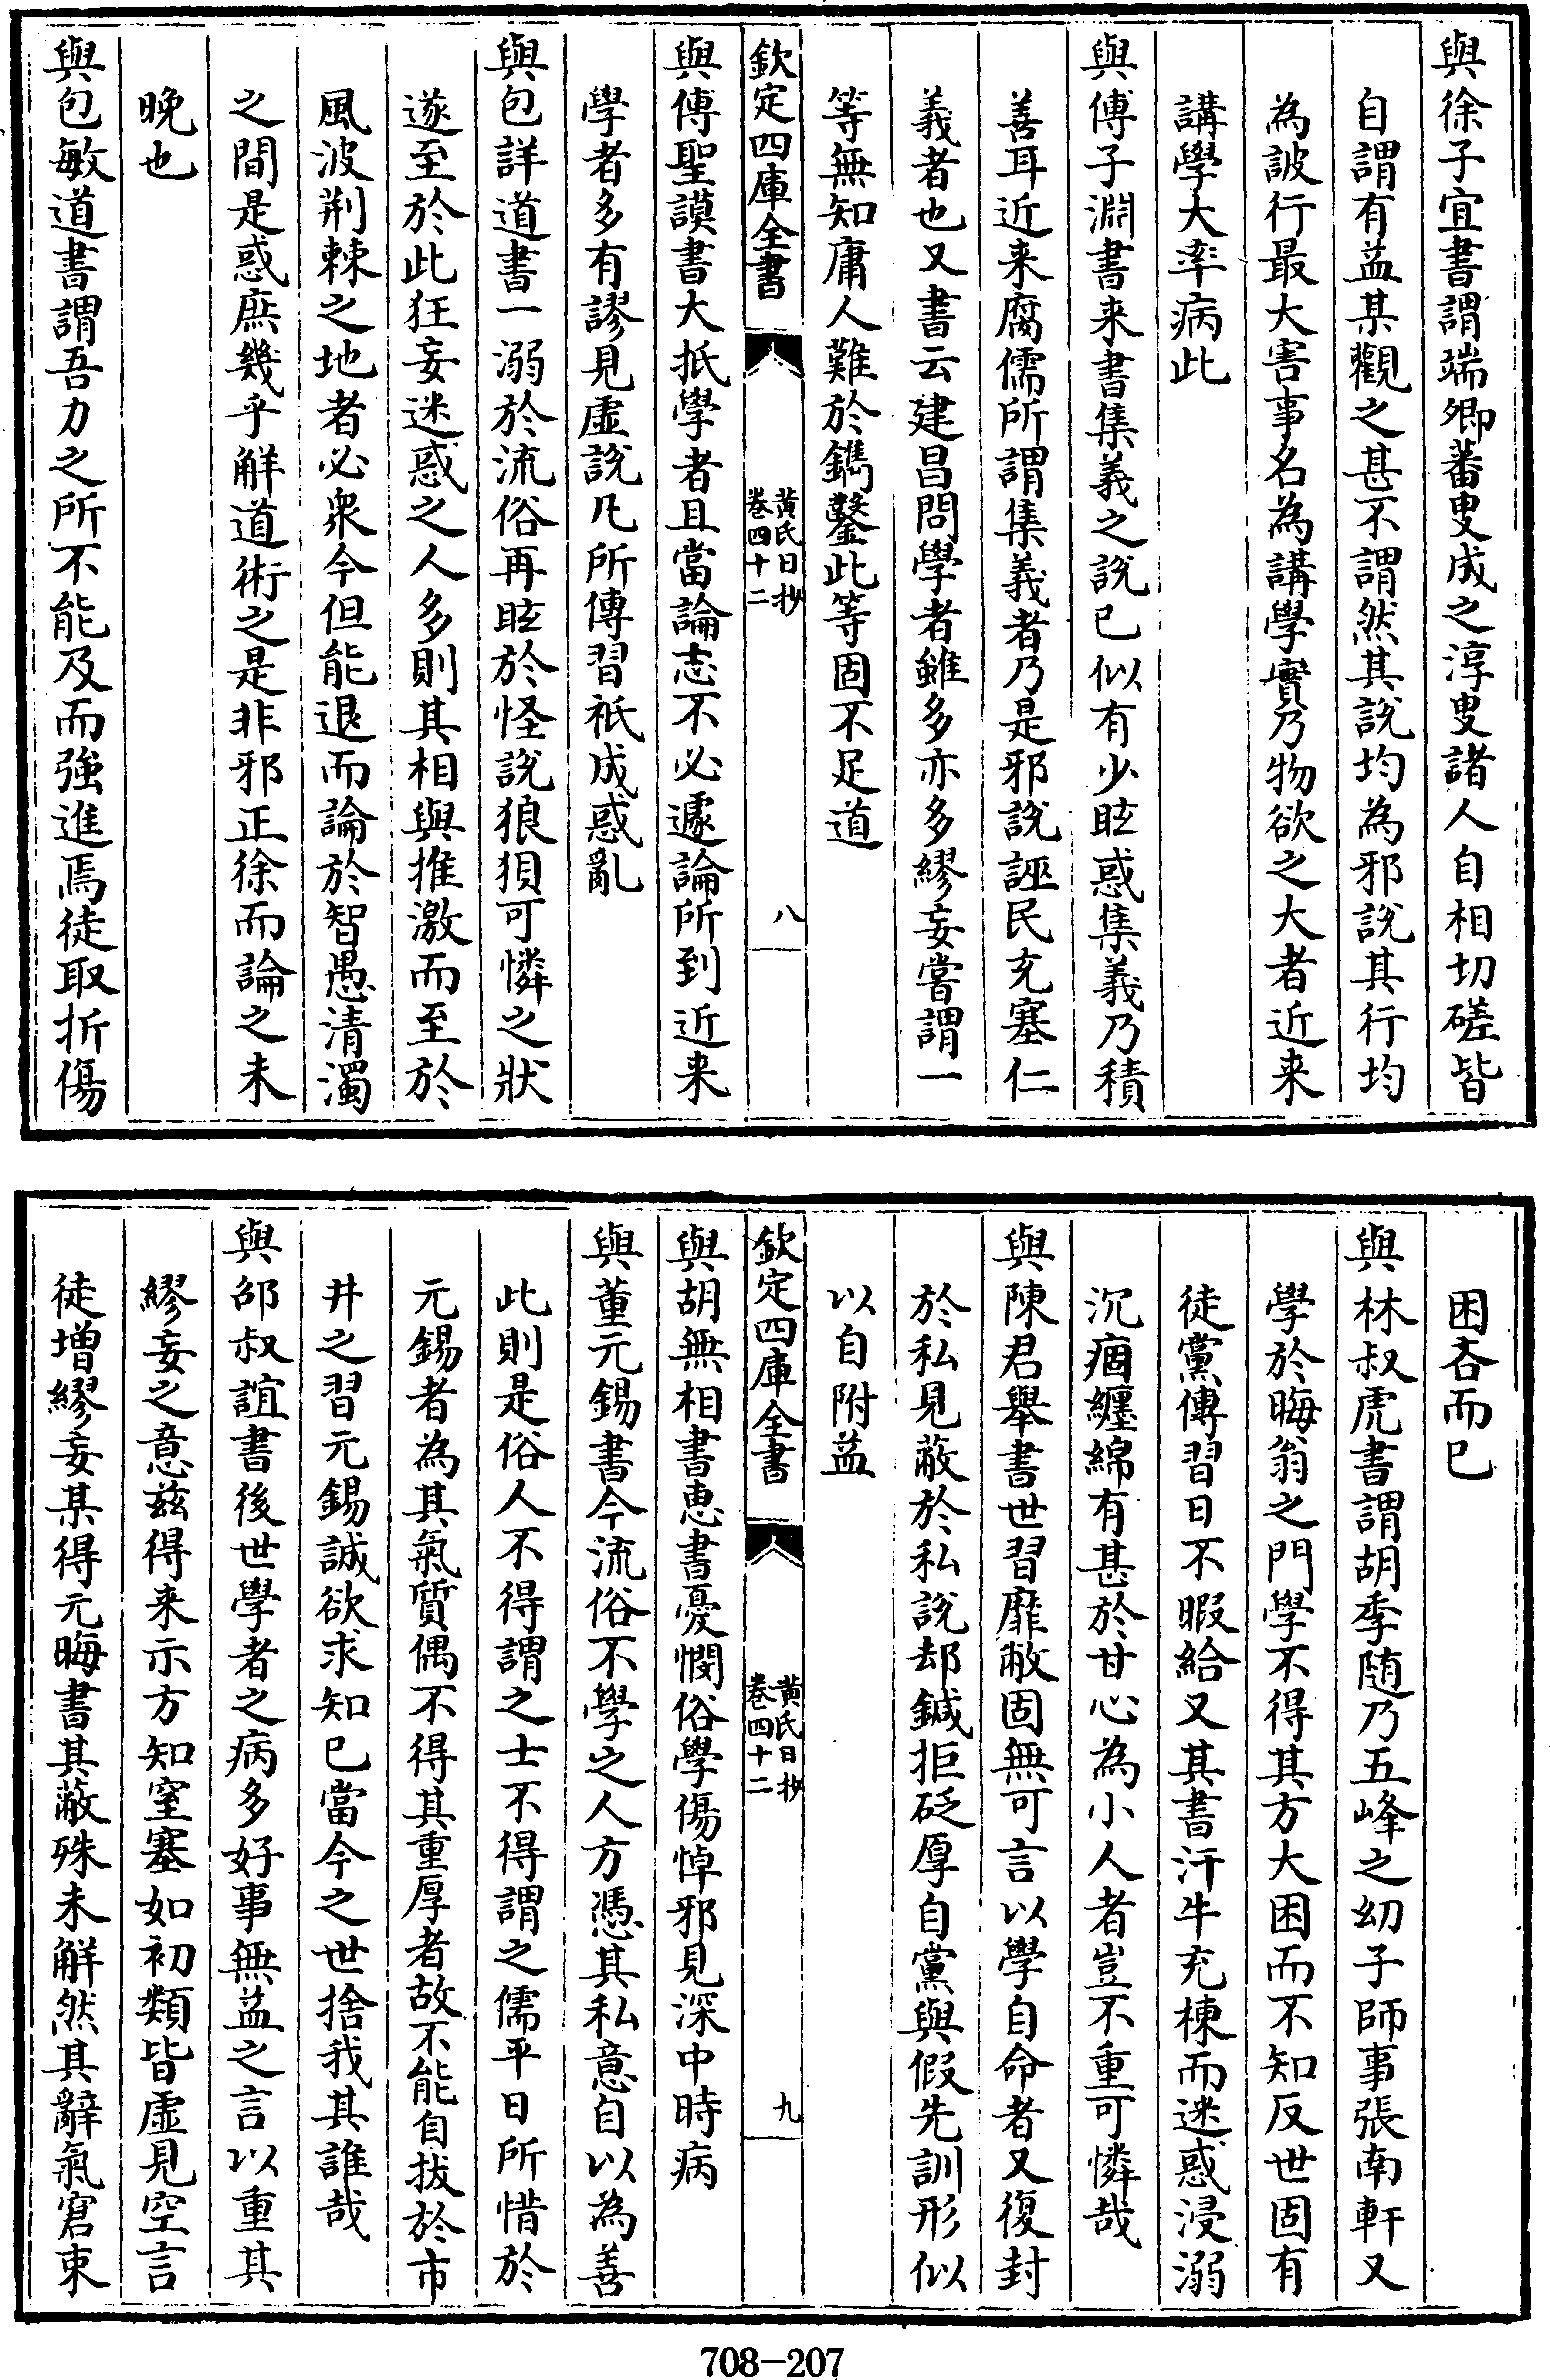 與徐子宜書謂端卿蕃叟成之淳叟諸人自相切磋皆
自謂有益某觀之甚不謂然其說均為邪說其行均
為詖行最大害事名為講學實乃物欲之大者近来
講學大率病此
與傅子淵書来書集義之說已似有少眩惑集義乃積
善耳近来腐儒所謂集義者乃是邪說誣民充塞仁
義者也又書云建昌問學者雖多亦多繆妄嘗謂一
等無知庸人難於鐫鑿此等固不足道
欽定四庫全書
黃氏日抄
卷四十二
八
與傅聖謨書大抵學者且當論志不必遽論所到近来
學者多有謬見虛說凡所傳習祇成惑亂
與包詳道書一溺於流俗再眩於怪說狼狽可憐之狀
遂至於此狂妄迷惑之人多則其相與推激而至於
風波荆棘之地者必衆今但能退而論於智愚清濁
之間是惑庶幾乎解道術之是非邪正徐而論之未
晚也
與包敏道書謂吾力之所不能及而強進焉徒取折傷
困吝而已
與林叔虎書謂胡季随乃五峰之幼子師事張南軒又
學於晦翁之門學不得其方大困而不知反世固有
徒黨傳習日不暇給又其書汗牛充棟而迷惑浸溺
沉痼纏綿有甚於甘心為小人者豈不重可憐哉
與陳君舉書世習靡敝固無可言以學自命者又復封
於私見蔽於私說却鍼拒砭厚自黨與假先訓形似
以自附益
欽定四庫全書
黃氏日抄
卷四十二
九
與胡無相書惠書憂憫俗學傷悼邪見深中時病
與董元錫書今流俗不學之人方憑其私意自以為善
此則是俗人不得謂之士不得謂之儒平日所惜於
元錫者為其氣質偶不得其重厚者故不能自拔於市
井之習元錫誠欲求知己當今之世捨我其誰哉
與邵叔誼書後世學者之病多好事無益之言以重其
繆妄之意兹得来示方知窒塞如初類皆虛見空言
徒增繆妄某得元晦書其蔽殊未解然其辭氣窘束
708-207